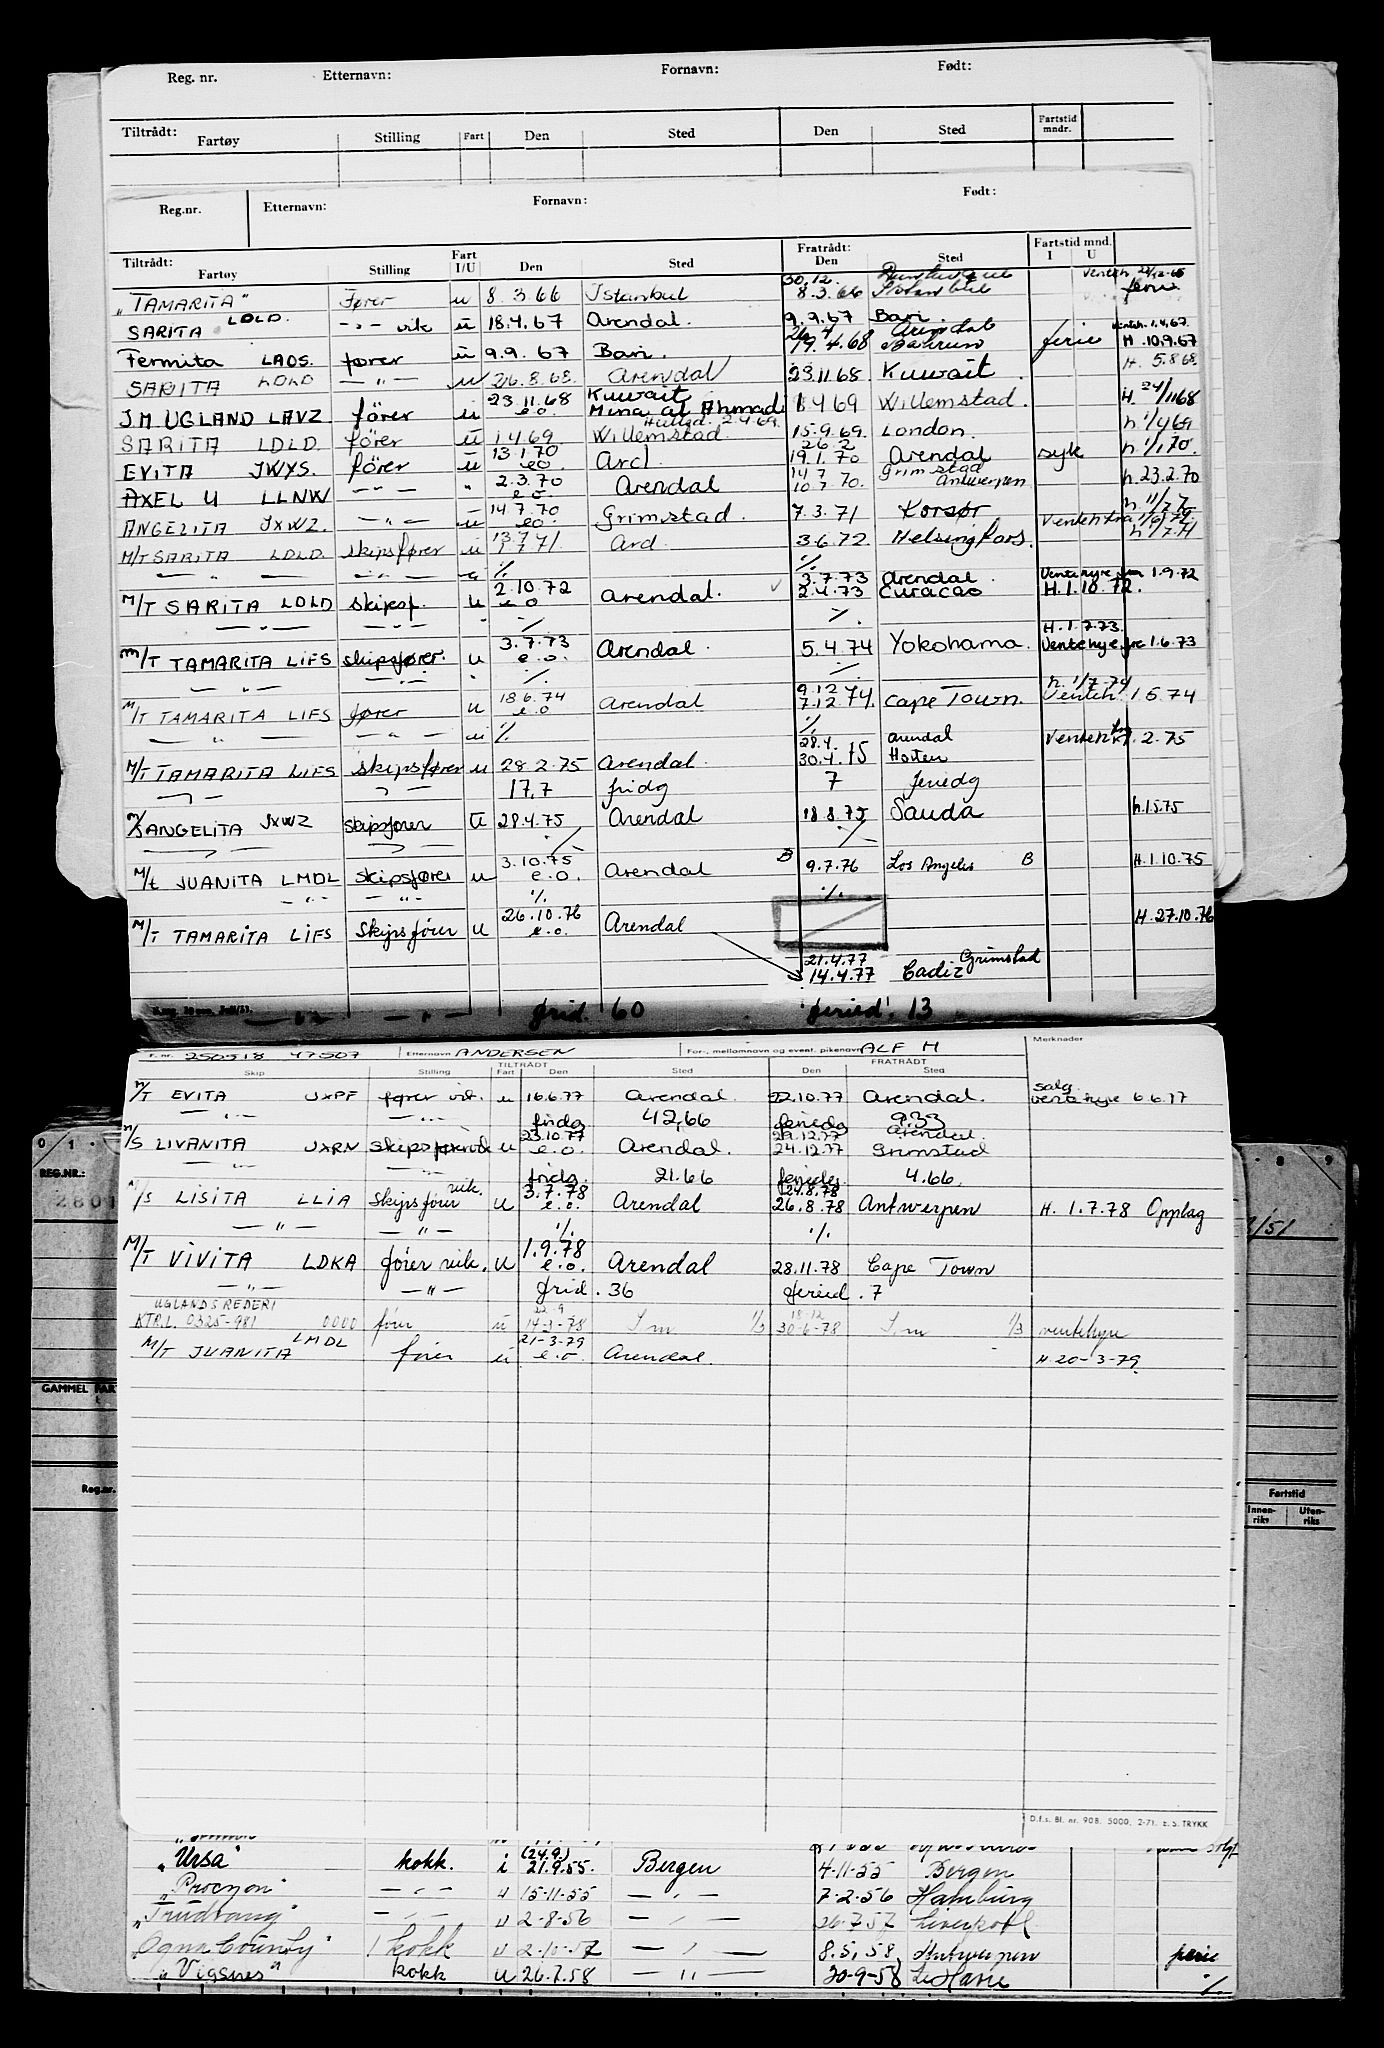 Reg. nr. Etternavn: Fornavn: Født:
Tiltrådt: Fartøy Stilling Fart Den Sted Den Sted Fartstid mndr.
Reg.nr. Etternavn: Fornavn: Født:
Tiltrådt: Fratrådt: Fartstid mnd.
Fartøy Stilling Fart I/U Den Sted Den Sted I U
30.12. Venteh. 22/12-65
"TAMARITA" Fører u 8.3.66 Istanbul 8.3.66 Istanbul ferie
SARITA LDLD. -"- vik u 18.4.67 Arendal. 9.9.67 Bari. Venteh. 1.4.67.
26.4 Arendal
Fermita LAOS. fører u 9.9.67 Bari. 19.4.68 ferie H. 10.9.67
SARITA LDLD -"- u 26.8.68. Arendal 23.11.68. Kuwait H. 5.8.68.
23.11.68 Kuwait
J.M UGLAND LAVZ fører u e.o. Mina al Ahmadi 1.4.69 Willemstad. H. 24/11 68
Hulled. 2.4.69.
SARITA LDLD. fører u 1.4.69. Willemstad 15.9.69. London. h. 1/4 69
13.1.70 26.2
EVITA JWYS. fører u e.o. Ard. 19.1.70 Arendal syk h. 1/1.70.
2.3.70 14.7 Grimstad
AXEL U LLNW -"- " e.o. Arendal 10.7.70. Antwerpen h. 23.2.70
14.7.70
ANGELITA JXWZ. -"- u e.o. Grimstad. 7.3.71 Korsør h 11/7 70
Venteh fra 1/6/71
13.7.71
M/T SARITA LDLD. skipsfører u 1.7.71 Ard. 3.6.72. Helsingfors. h 1/7.71
-"- -"- u % %
2.10.72 3.7.73 Arendal. Ventehyre fra 1.9.72
M/T SARITA LDLD skipsf. u e.o Arendal. 2.4.73 Curacao H.1.10.72.
-"- " % %
3.7.73 H.1.7.73.
M/T TAMARITA LIFS skipsfører. u e.o. Arendal. 5.4.74 Yokohama. Ventehyre fra 1.6.73
-"- " % %
18.6.74 9.12.74 h. 1/7-74
M/T TAMARITA LIFS fører u e.o Arendal 7.12.74. Cape Town. Venteh. 1.5.74
-"- -"- u % %
28.4. Arendal Venteh fra 1.2.75
M/T TAMARITA LIFS skipsfører u 28.2.75 Arendal. 30.4.75 Horten
-"- -"- 17,7 fridg 7 feriedg
M/S ANGELITA JXWZ skipsfører U 28.4.75 Arendal 18.8.75 Sauda h.1.5.75
-"- -"- % %
3.10.75
M/t JUANITA LMDL skipsfører u e.o. Arendal B 9.7.76 Los Angeles B H.1.10.75
-"- -"- % %
26.10.76
M/T TAMARITA LIFS Skipsfører u e.o. Arendal H. 27.10.76
21.4.77 Grimstad
14.4.77 Cadiz
-"- -"- frid. 60 feried. 13
F. nr. 250518 47507 Etternavn ANDERSEN For-, mellomnavn og event. pikenavn ALF M Merknader
TILTRÅDT FRATRÅDT
Skip Stilling Fart Den Sted Den Sted
M/T EVITA JXPF fører vik. u 16.6.77 Arendal. 22.10.77 Arendal. salg ventehyre 6.6.77
-"- -"- fridg 42,66 feriedg 9.33
23.10.77 29.12.77 Arendal.
M/S LIVANITA JXRN skipsfører vik u e.o. Arendal. 24.12.77 Grimstad
-"- -"- fridg. 21.66 feriedg 4.66.
vik. 3.7.78 24.8.78
M/S LISITA LLIA Skipsfører u e.o. Arendal 26.8.78 Antwerpen H. 1.7.78 Opplag
-"- -"- % %
1.9.78
M/T VIVITA LDKA fører vik. U e.o. Arendal 28.11.78 Cape Town
-"- -"- frid. 36 feried. 7
UGLANDS REDERI 22-9 18-12
KTR.L. 0325-981 0000 fører u 14-3-78 1/3 30-6-78 1/3 ventehyre
21-3-79
M/T JUANITA LMDL fører u e.o. Arendal. H. 20-3-79.
D.f.s. Bl. nr. 90B. 5000. 2-71. E.S. TRYKK
0 1 8 9
REG.NR.:
Reg.nr.
Fartstid
Innenriks Utenriks
(24.9.)
"Ursa" kokk. i 21.9.55. Bergen 4-11-55 Bergen
"Procyon" -"- u 15-11-55 -"- 7-2-56 Hamburg
"Trudvang" -"- u 2-8-56 -"- 26.7.57 Liverpool
"Ogna County" 1 kokk u 2-10-57 -"- 8.5.58 Antwerpen ferie
"Vigsnes" kokk u 26.7.58 -"- 20-9-58 Le Havre %